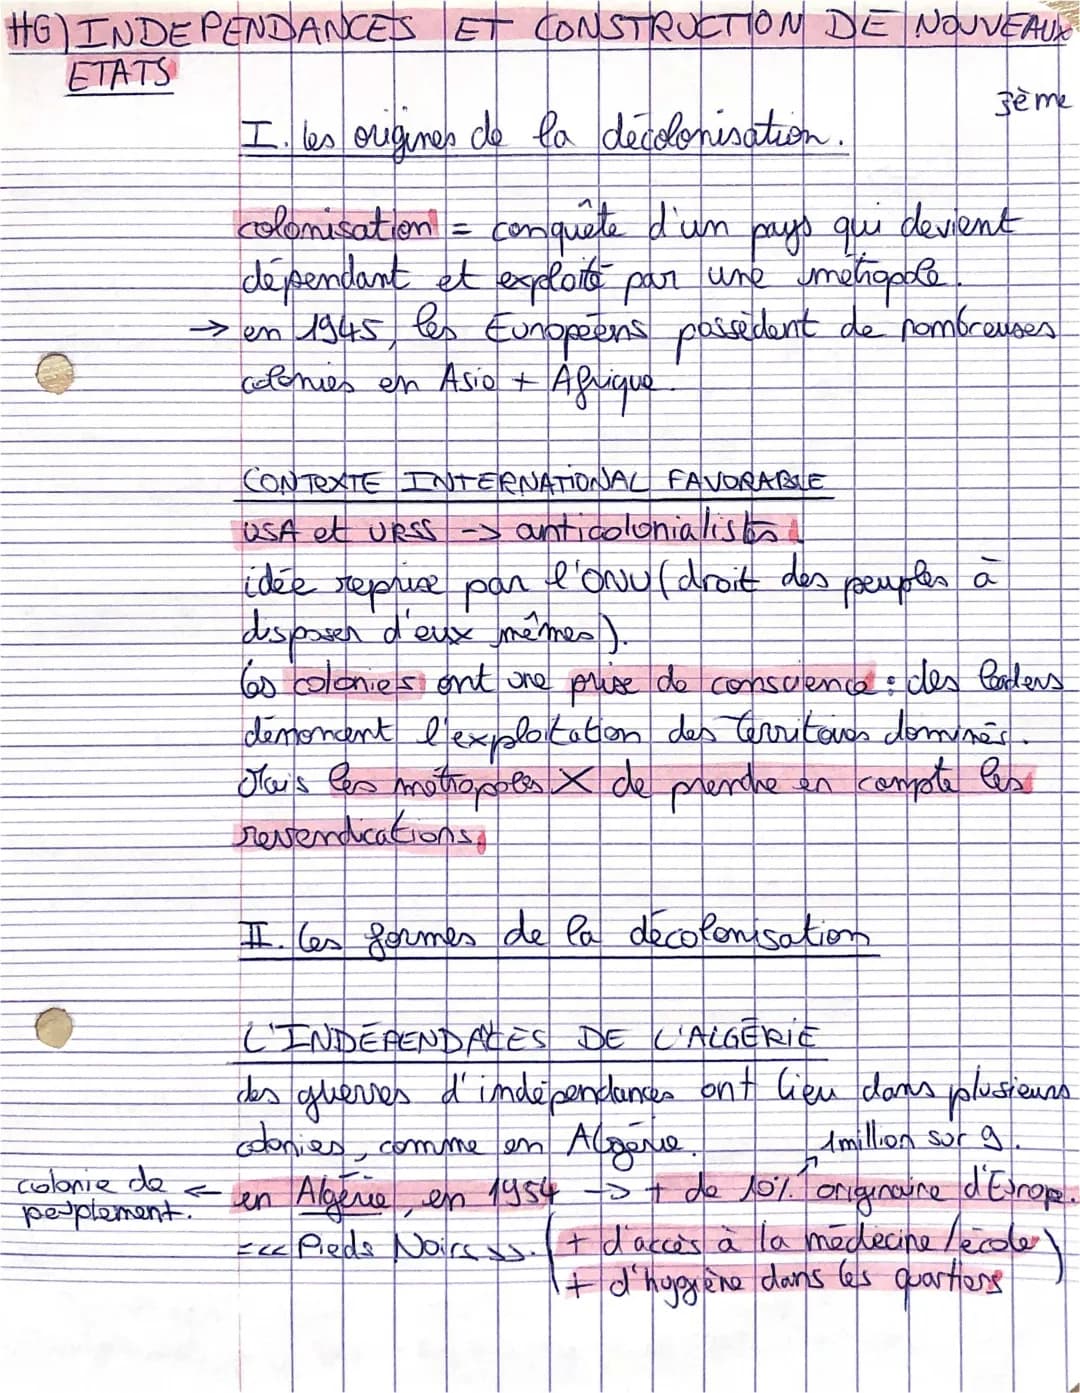 HG) INDEPENDANCES ET CONSTRUCTION DE NOUVEAUX
ETATS
3ème
I. les origines de la décolonisation.
colonisation = conquête d'un pays qui devient
dépendant et exploité par une métropole.
→ en 1945, les Européens possèdent de nombreuses
colonies en Asie + Afrique.
CONTEXTE INTERNATIONAL FAVORABLE
USA et URSS -> anticolonialistes.
idée reprise par l'ONU (droit des peuples à
disposer d'eux mêmes).
les colonies ont une prise de conscience : des leaders
dénoncent l'exploitation des territoires dominés.
Mais les métropoles X de prendre en compte les
revendications.
II. Les formes de la décolonisation
L'INDÉPENDACES DE L'ALGÉRIE
des guerres d'indépendances ont lieu dans plusieurs
colonies, comme en Algérie.
1 million sur 9.
colonie de ← en Algérie, en 1954 -> + de 10% originaire d'Europ.
peuplement.
= << Pieds Noirs >>. ( + d'accès à la médecine / école )
+ d'hygiène dans les quartiers